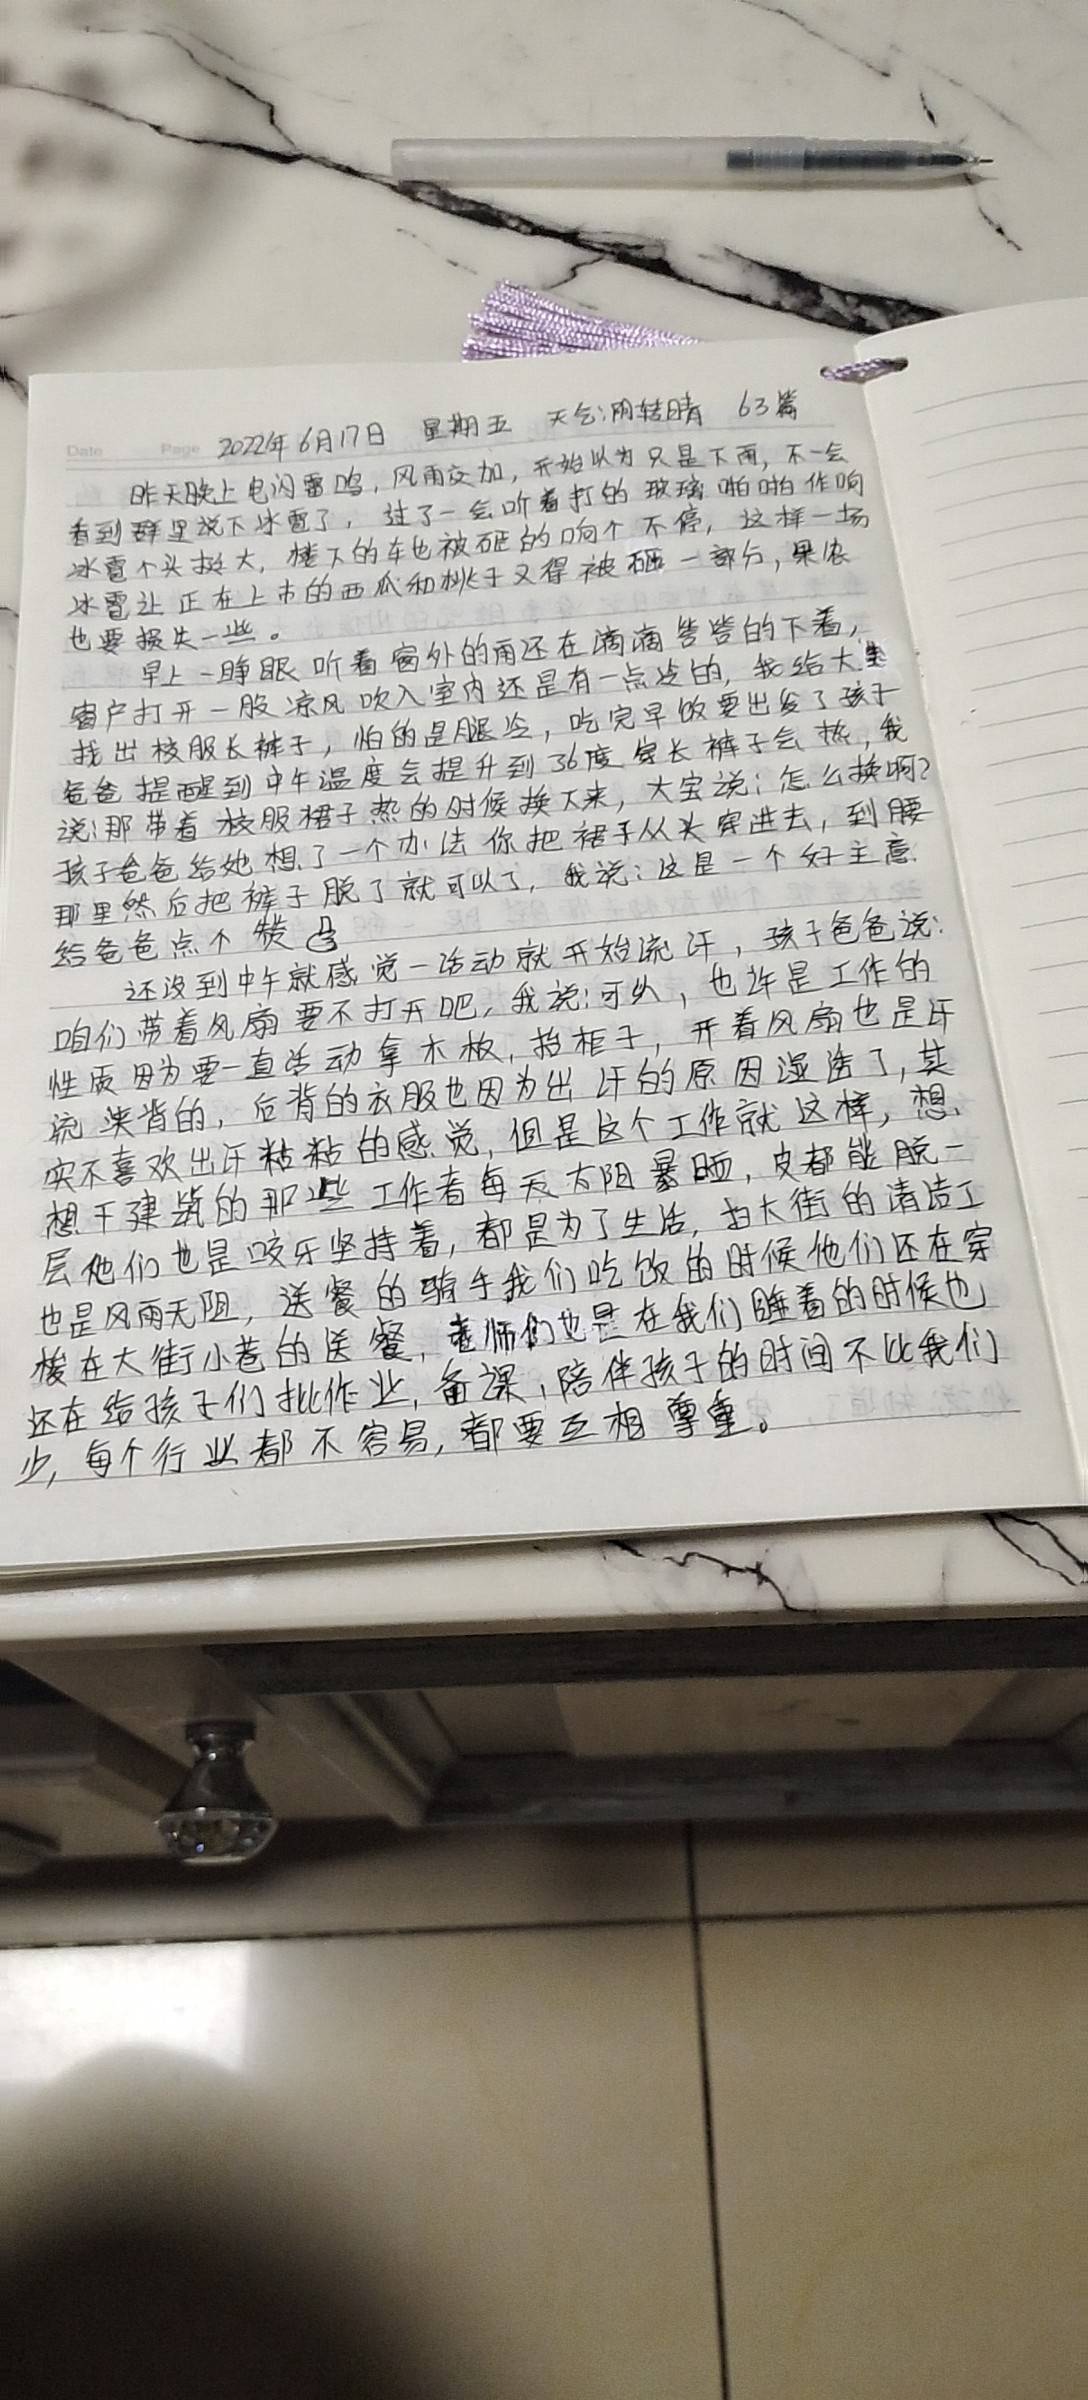 Date Page 2022年6月17日 星期五 天气:阴转晴 63篇
昨天晚上电闪雷鸣,风雨交加,开始以为只是下雨,不一会
看到群里说下冰雹了,过了一会听着打的玻璃啪啪作响
冰雹个头挺大,楼下的车也被砸的响个不停,这样一场
冰雹让正在上市的西瓜和桃子又得被砸一部分,果农
也要损失一些。
早上一睁眼听着窗外的雨还在滴滴答答的下着,
窗户打开一股凉风吹入室内还是有一点冷的,我给大宝
找出校服长裤子,怕的是腿冷,吃完早饭要出发了孩子
爸爸提醒到中午温度会提升到36度穿长裤子会热,我
说:那带着校服裙子热的时候换下来,大宝说:怎么换啊?
孩子爸爸给她想了一个办法你把裙子从头穿进去,到腰
那里然后把裤子脱了就可以了,我说:这是一个好主意.
给爸爸点个赞👍
还没到中午就感觉一活动就开始流汗,孩子爸爸说:
咱们带着风扇要不打开吧,我说:可以,也许是工作的
性质因为要一直活动拿木板,抬柜子,开着风扇也是汗
流浃背的,后背的衣服也因为出汗的原因湿透了,其
实不喜欢出汗粘粘的感觉,但是这个工作就这样,想
想干建筑的那些工作者每天太阳暴晒,皮都能脱一
层他们也是咬牙坚持着,都是为了生活,扫大街的清洁工
也是风雨无阻,送餐的骑手我们吃饭的时候他们还在穿
梭在大街小巷的送餐,老师们也是在我们睡着的时候也
还在给孩子们批作业,备课,陪伴孩子的时间不比我们
少,每个行业都不容易,都要互相尊重。